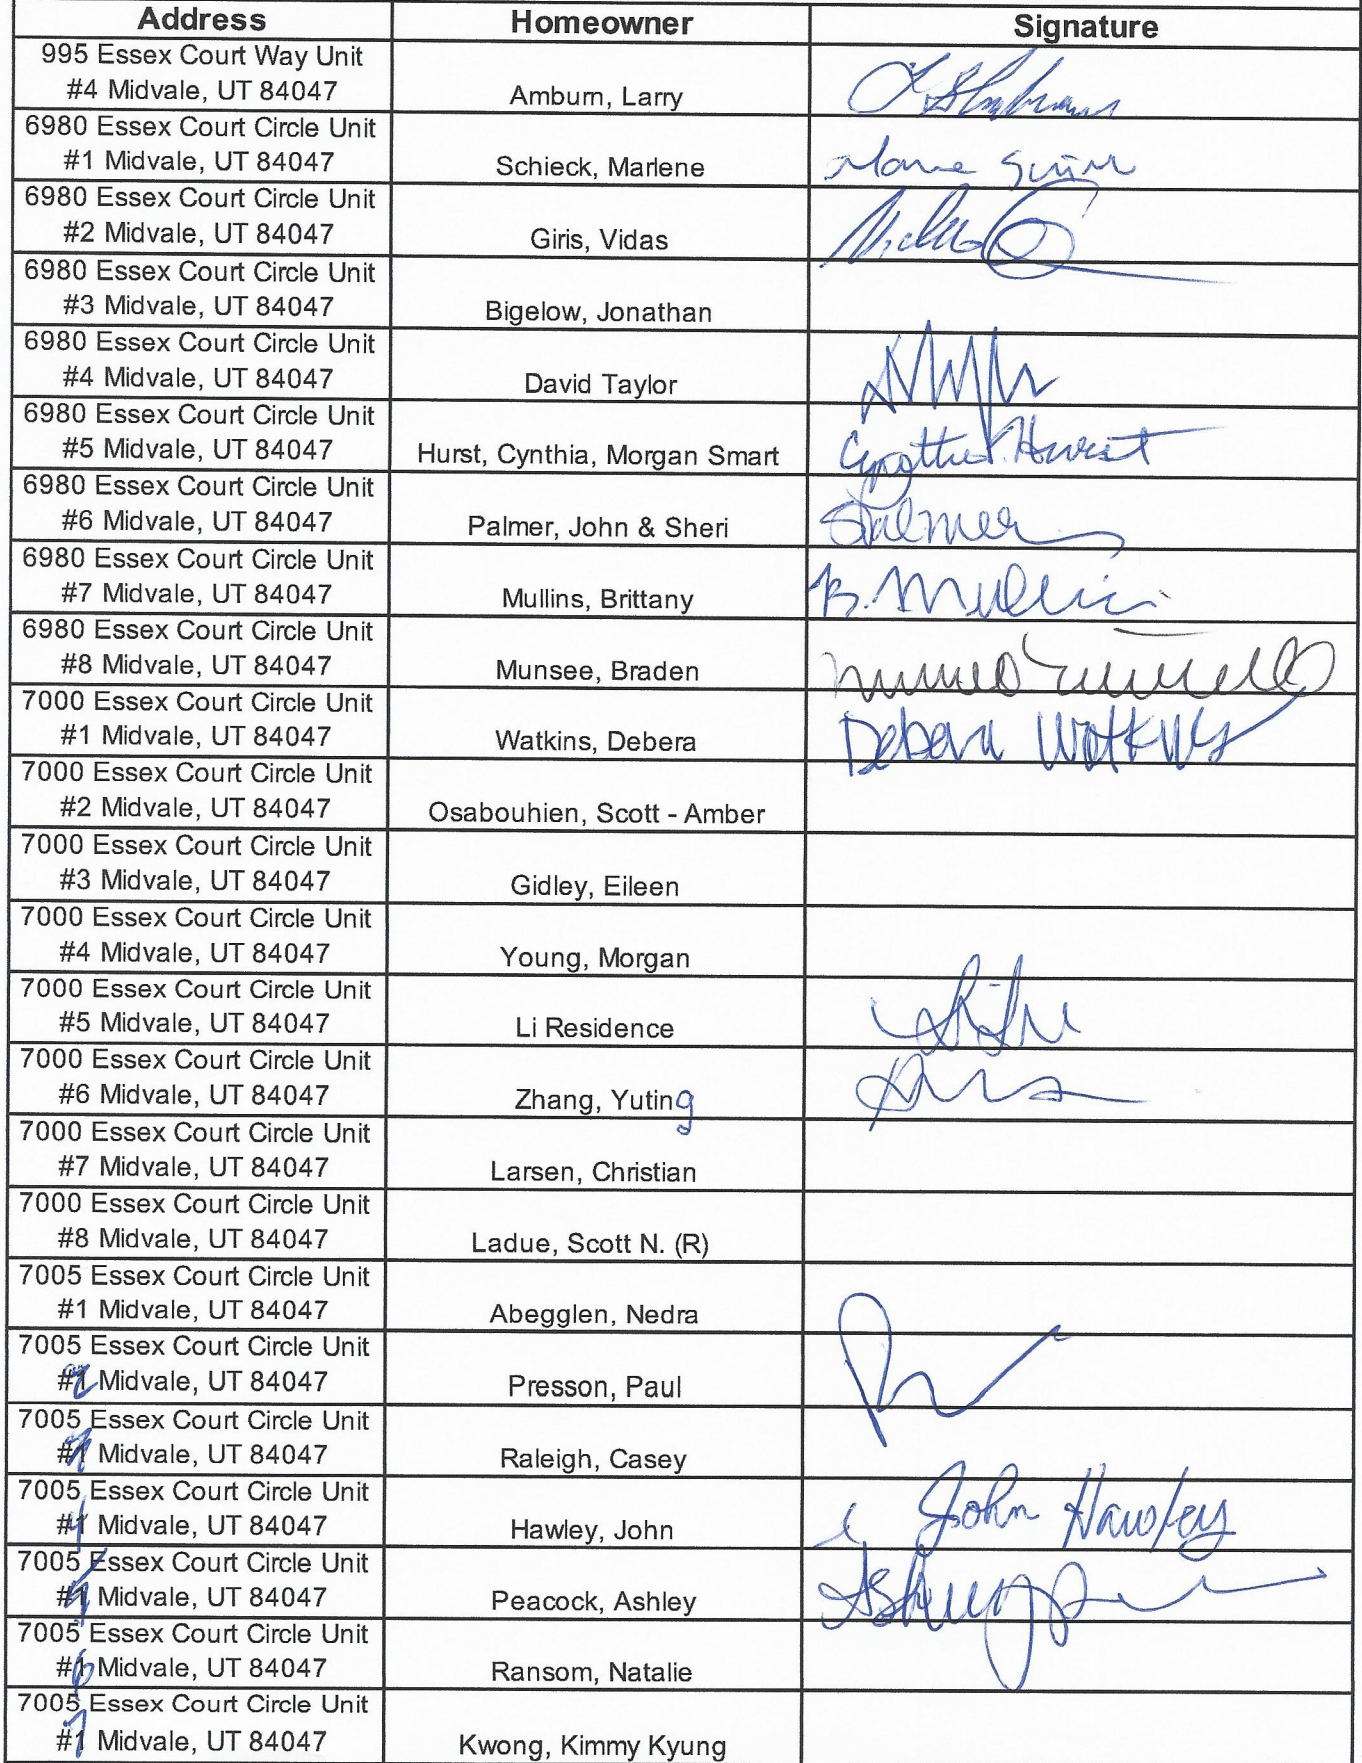 Address Homeowner Signature
995 Essex Court Way Unit
#4 Midvale, UT 84047 Amburn, Larry
6980 Essex Court Circle Unit
#1 Midvale, UT 84047 Schieck, Marlene
6980 Essex Court Circle Unit
#2 Midvale, UT 84047 Giris, Vidas
6980 Essex Court Circle Unit
#3 Midvale, UT 84047 Bigelow, Jonathan
6980 Essex Court Circle Unit
#4 Midvale, UT 84047 David Taylor
6980 Essex Court Circle Unit
#5 Midvale, UT 84047 Hurst, Cynthia, Morgan Smart Cynthia Hurst
6980 Essex Court Circle Unit
#6 Midvale, UT 84047 Palmer, John & Sheri SPalmer
6980 Essex Court Circle Unit
#7 Midvale, UT 84047 Mullins, Brittany B. Mullins
6980 Essex Court Circle Unit
#8 Midvale, UT 84047 Munsee, Braden
7000 Essex Court Circle Unit
#1 Midvale, UT 84047 Watkins, Debera Debera Watkins
7000 Essex Court Circle Unit
#2 Midvale, UT 84047 Osabouhien, Scott - Amber
7000 Essex Court Circle Unit
#3 Midvale, UT 84047 Gidley, Eileen
7000 Essex Court Circle Unit
#4 Midvale, UT 84047 Young, Morgan
7000 Essex Court Circle Unit
#5 Midvale, UT 84047 Li Residence
7000 Essex Court Circle Unit
#6 Midvale, UT 84047 Zhang, Yuting
7000 Essex Court Circle Unit
#7 Midvale, UT 84047 Larsen, Christian
7000 Essex Court Circle Unit
#8 Midvale, UT 84047 Ladue, Scott N. (R)
7005 Essex Court Circle Unit
#1 Midvale, UT 84047 Abegglen, Nedra
7005 Essex Court Circle Unit
#2 Midvale, UT 84047 Presson, Paul
7005 Essex Court Circle Unit
#1 Midvale, UT 84047 Raleigh, Casey
7005 Essex Court Circle Unit
#4 Midvale, UT 84047 Hawley, John John Hawley
7005 Essex Court Circle Unit
#5 Midvale, UT 84047 Peacock, Ashley
7005 Essex Court Circle Unit
#6 Midvale, UT 84047 Ransom, Natalie
7005 Essex Court Circle Unit
#7 Midvale, UT 84047 Kwong, Kimmy Kyung